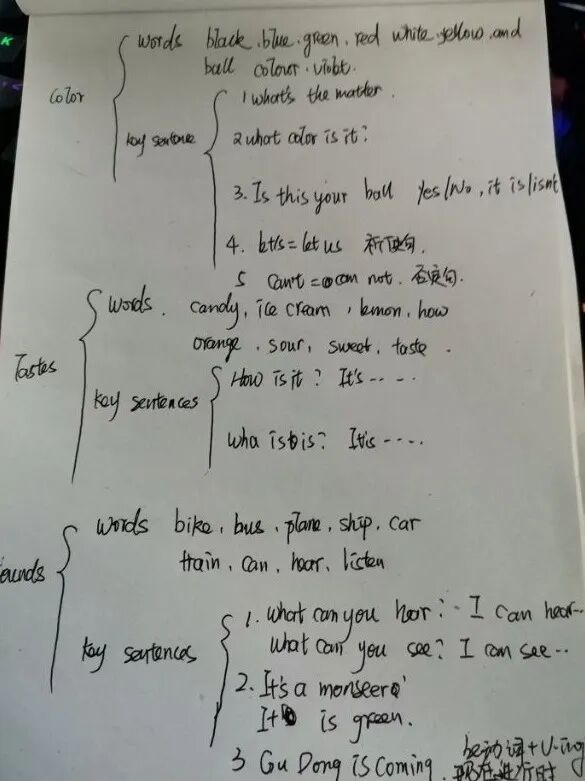 words black, blue, green, red white, yellow, and
ball colour, violet.
Color
key sentence
1 what's the matter.
2 what color is it?
3. Is this your ball Yes/No, it is/isn't
4. let's = let us 祈使句.
5 can't = can not. 否定句.
words. candy, ice cream, lemon, how
orange, sour, sweet, taste.
Tastes
key sentences
How is it? It's .....
wha is this? It's ....
words bike, bus, plane, ship, car
train, can, hear, listen
ounds
key sentences
1. what can you hear? - I can hear...
what can you see? I can see...
2. It's a
It is green.
3 Gu Dong is coming. be动词+V-ing
现在进行时